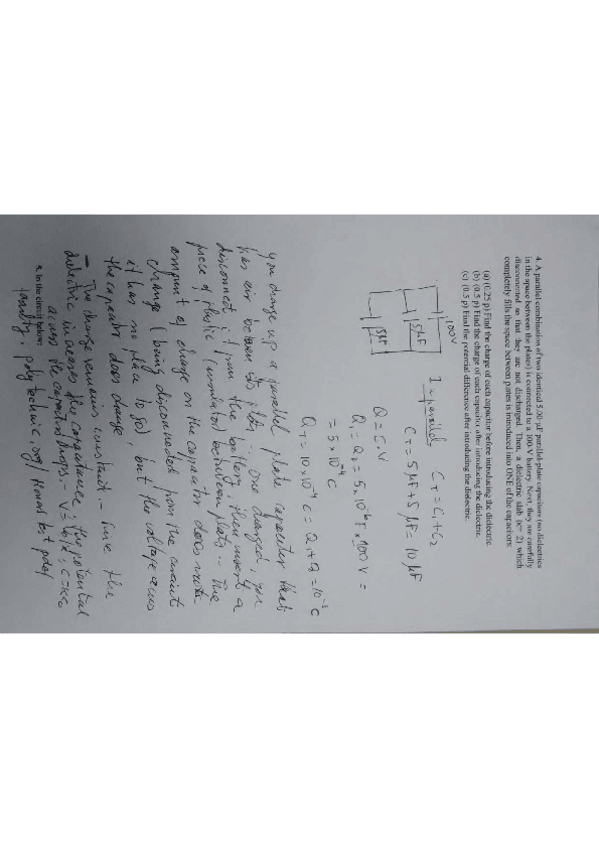 4. A parallel combination of two identical 5.00 μF parallel-plate capacitors (no dielectrics
in the space between the plates) is connected to a 100 V battery. Next, they are carefully
disconnected so that they are not discharged. Then, a dielectric slab (κ= 2) which
completely fills the space between plates is introduced into ONE of the capacitors.
(a) (0.25 p) Find the charge of each capacitor before introducing the dielectric.
(b) (0.5 p) Find the charge of each capacitor after introducing the dielectric.
(c) (0.5 p) Find the potential difference after introducing the dielectric.
100V
5μF
5μF
In parallel CT = C1 + C2
CT = 5μF + 5μF = 10 μF
Q = C.V
Q1 = Q2 = 5x10⁻⁶ F x 100 V =
= 5x10⁻⁴ C
QT = 10x10⁻⁴ C = Q1 + Q2 = 10⁻³ C
you charge up a parallel plate capacitor that
has air between its plates -. One charged, you
disconnect it from the battery, then insert a
piece of plastic (insulator) between plates -. The
amount of charge on the capacitor does not
change (being disconnected from the circuit
it has no place to go), but the voltage across
the capacitor does change.
- The charge remains constant -. Since the
dielectric increases the capacitance, the potential
across the capacitor drops -.
8. In the circuit below: